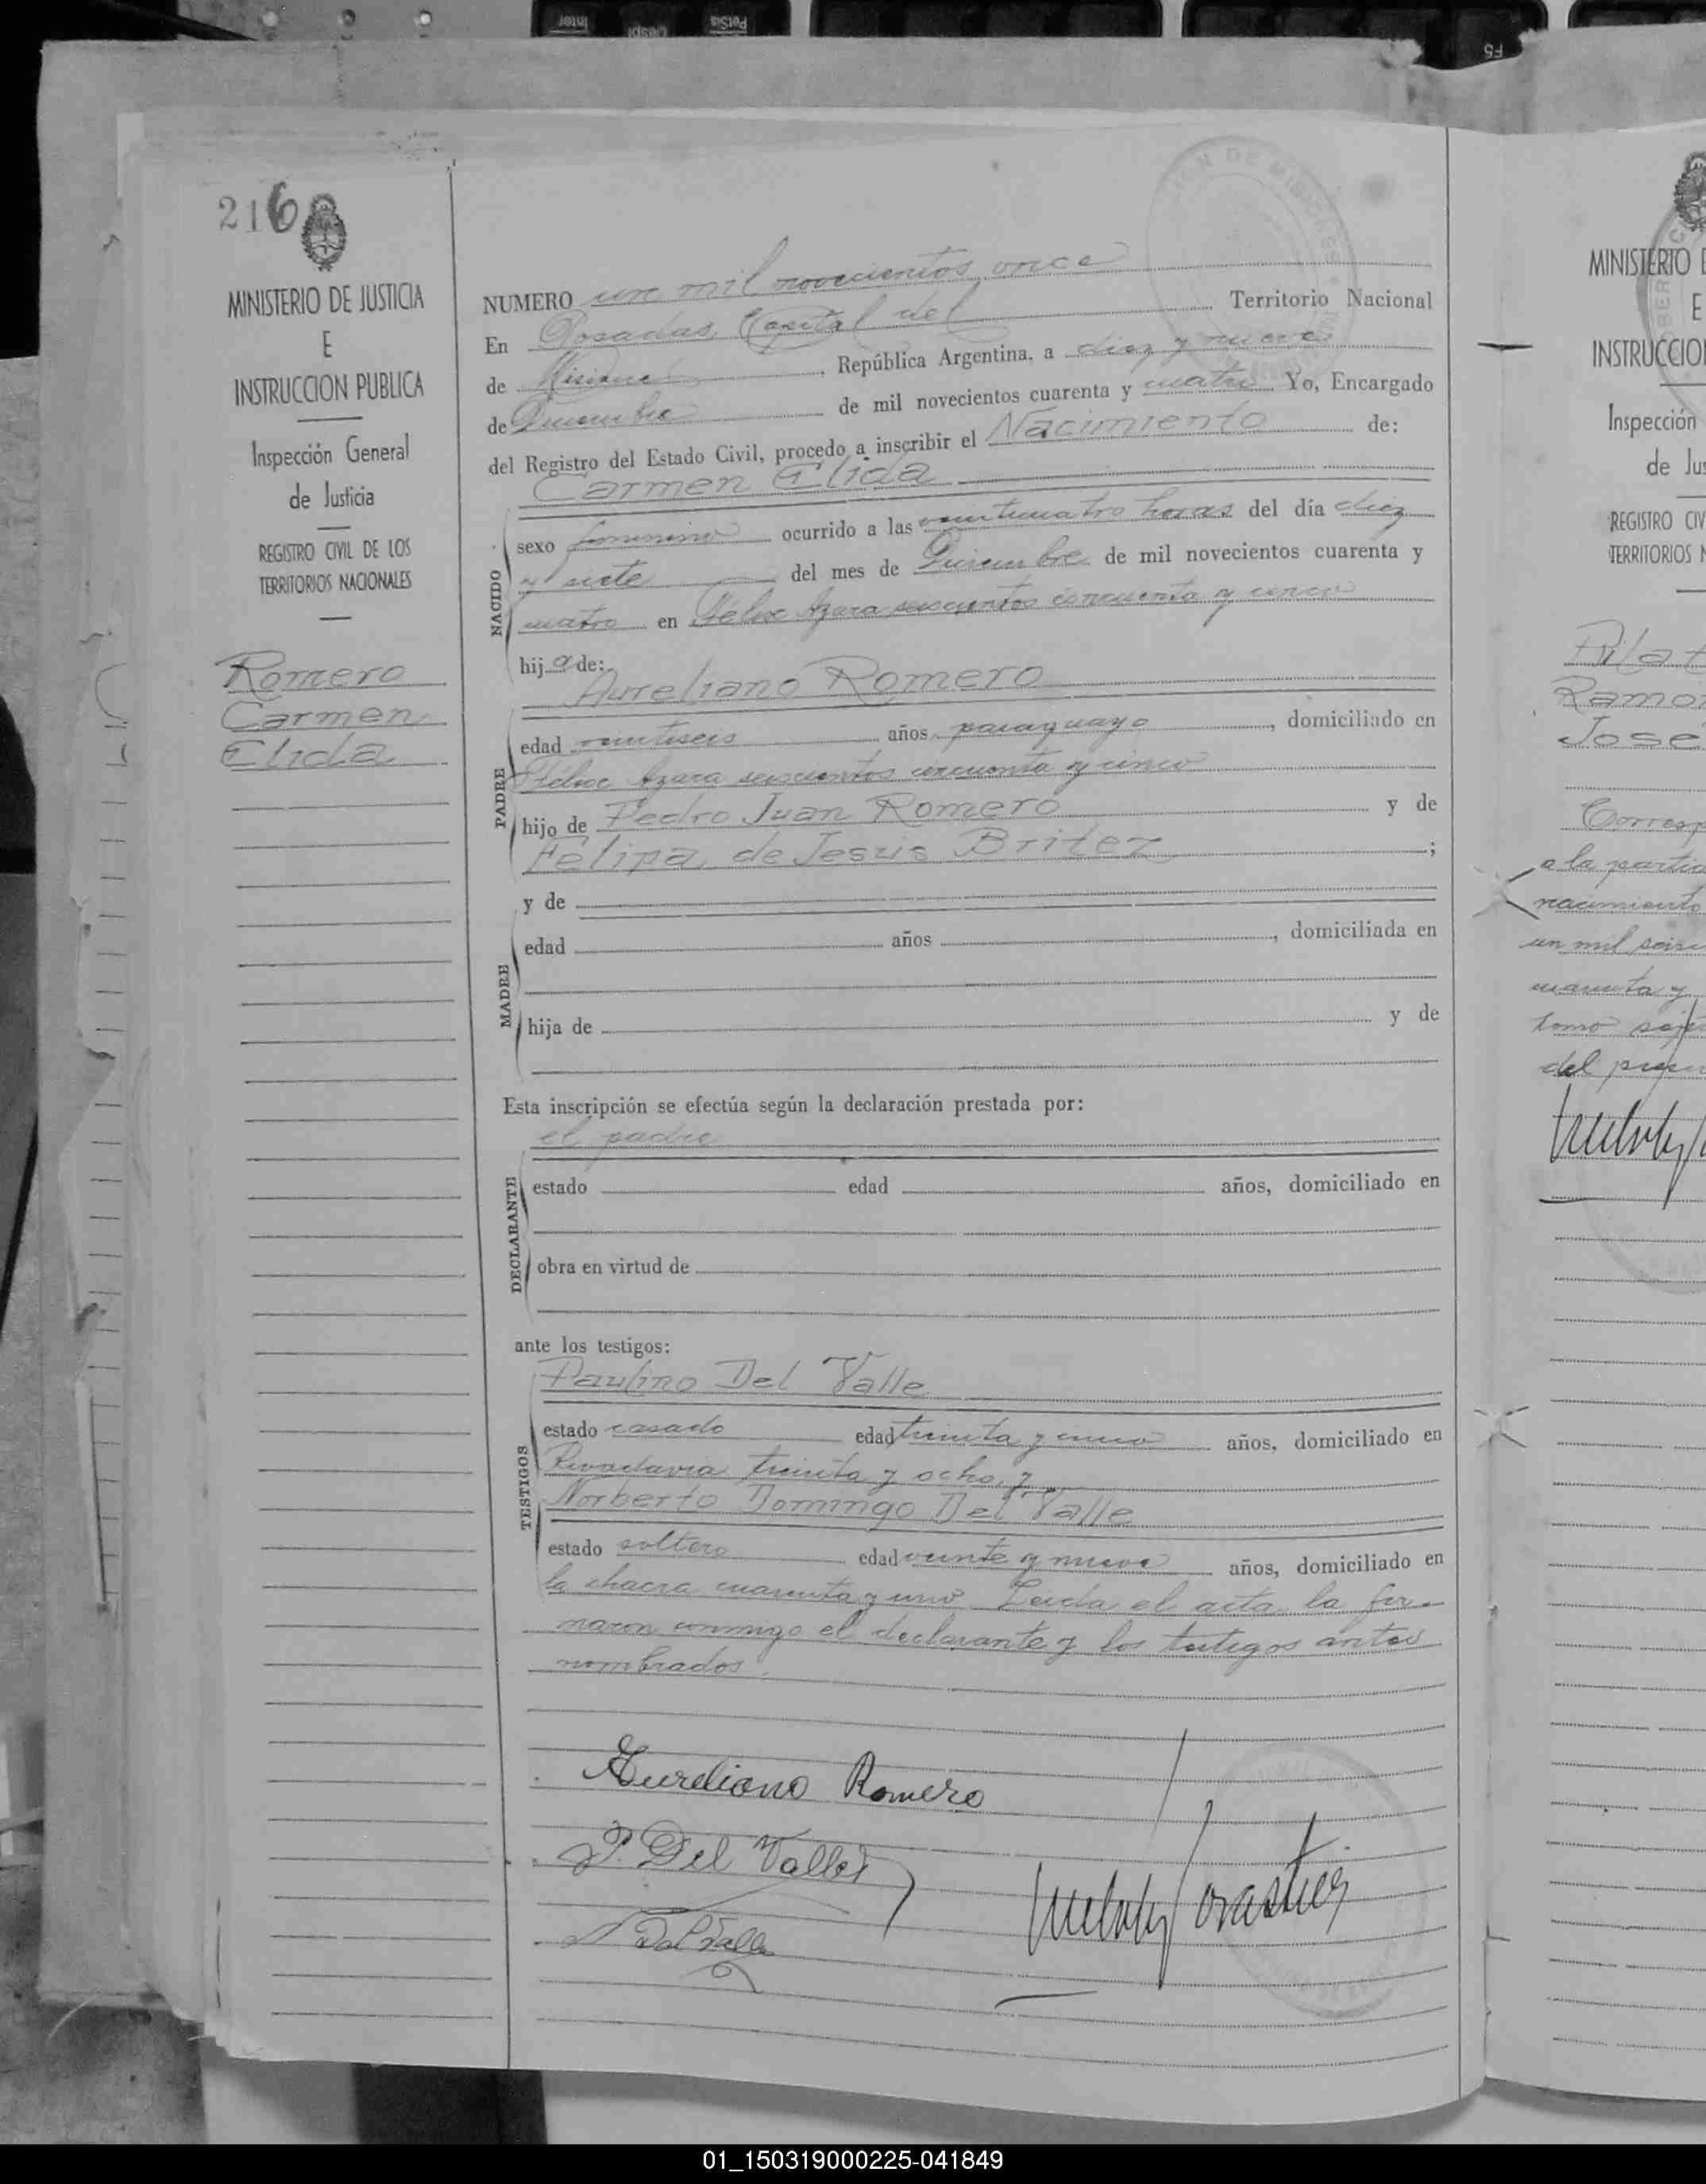 Inter
PetSis
F5
216
MINISTERIO DE JUSTICIA
E
INSTRUCCION PUBLICA
Inspección General
de Justicia
REGISTRO CIVIL DE LOS
TERRITORIOS NACIONALES
Romero
Carmen
Elida
NUMERO un mil novecientos once
En Posadas Capital del Territorio Nacional
de Misiones, República Argentina, a diez y nueve
de Diciembre de mil novecientos cuarenta y cuatro Yo, Encargado
del Registro del Estado Civil, procedo a inscribir el Nacimiento de:
Carmen Elida
NACIDO
sexo femenino ocurrido a las veinticuatro horas del día diez
y siete del mes de Diciembre de mil novecientos cuarenta y
cuatro en Félix Azara seiscientos cincuenta y cinco
hija de:
Aureliano Romero
PADRE
edad veintiseis años paraguayo, domiciliado en
Félix Azara seiscientos cincuenta y cinco
hijo de Pedro Juan Romero y de
Felipa de Jesús Britez;
y de
MADRE
edad años , domiciliada en
hija de y de
Esta inscripción se efectúa según la declaración prestada por:
el padre
DECLARANTE
estado edad años, domiciliado en
obra en virtud de
ante los testigos:
Paulino Del Valle
TESTIGOS
estado casado edad treinta y cinco años, domiciliado en
Rivadavia treinta y ocho y
Norberto Domingo Del Valle
estado soltero edad veinte y nueve años, domiciliado en
la chacra cuarenta y uno Leida el acta la fir-
maron conmigo el declarante y los testigos antes
nombrados.
Aureliano Romero
P. Del Valle
N Del Valle
MINISTERIO
E
INSTRUCCIO
Inspección
de Jus
REGISTRO CIV
TERRITORIOS N
Ramo
Jose
Corresp
a la partid
nacimiento
un mil seisc
cuarenta y
tomo
del
01_150319000225-041849